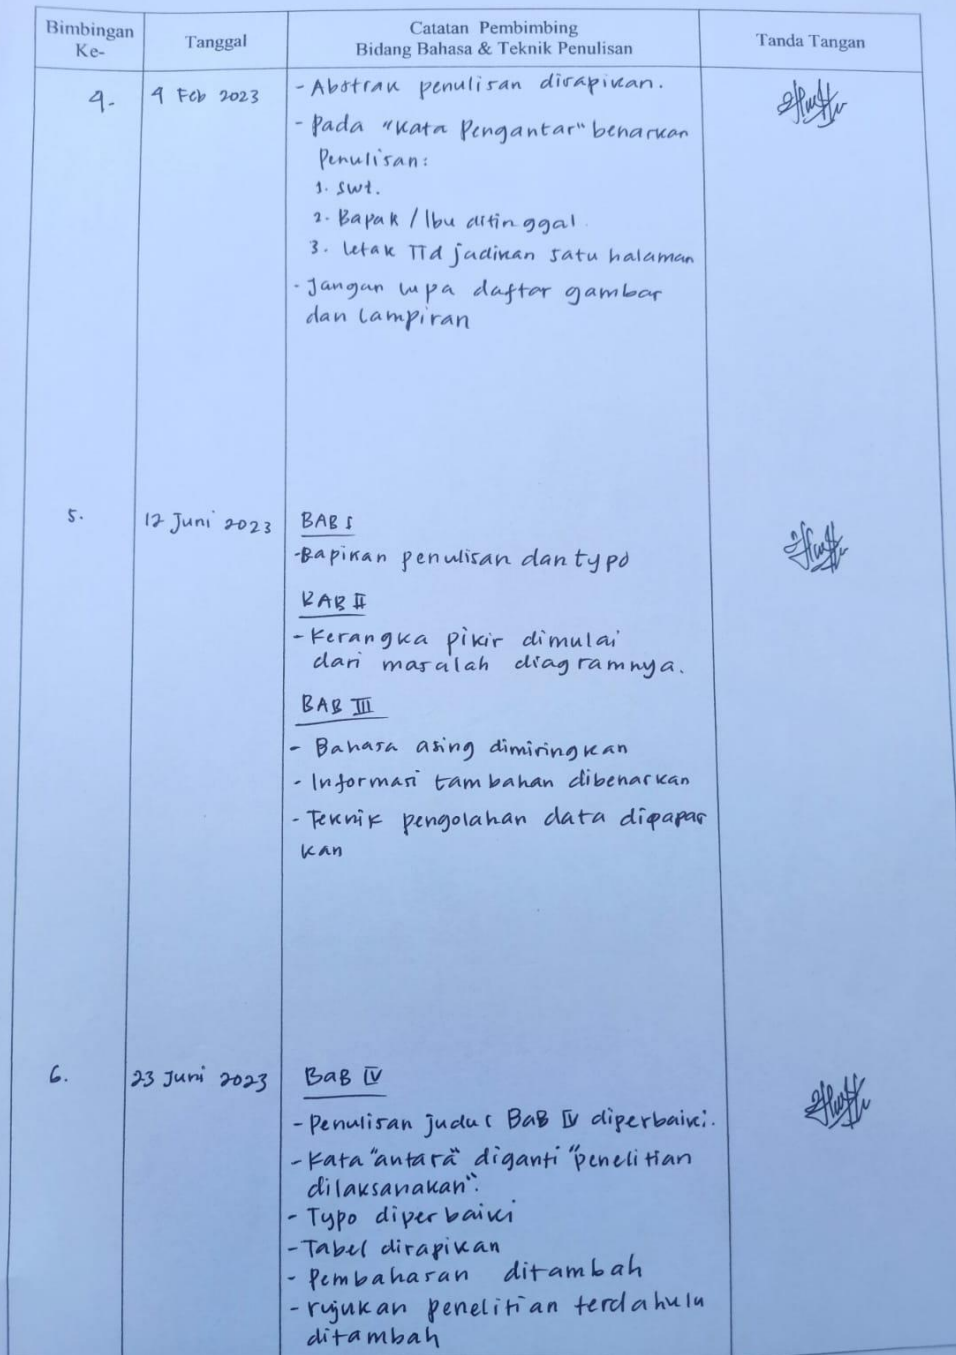 Bimbingan
Ke-
Tanggal
Catatan Pembimbing
Bidang Bahasa & Teknik Penulisan
Tanda Tangan
4.
9 Feb 2023
- Abstrak penulisan dirapikan.
- Pada "Kata Pengantar" benarkan
Penulisan:
1. swt.
2. Bapak / Ibu ditinggal
3. letak TTd jadikan satu halaman
- Jangan lupa daftar gambar
dan lampiran
5.
12 Juni 2023
BAB I
- Rapikan penulisan dan typo
BAB II
- Kerangka pikir dimulai
dari masalah diagramnya.
BAB III
- Bahasa asing dimiringkan
- Informasi tambahan dibenarkan
- Teknik pengolahan data dipapar
kan
6.
23 Juni 2023
BaB IV
- Penulisan judul BaB IV diperbaiki.
- Kata "antara" diganti "penelitian
dilaksanakan".
- Typo diperbaiki
- Tabel dirapikan
- Pembahasan ditambah
- rujukan penelitian terdahulu
ditambah